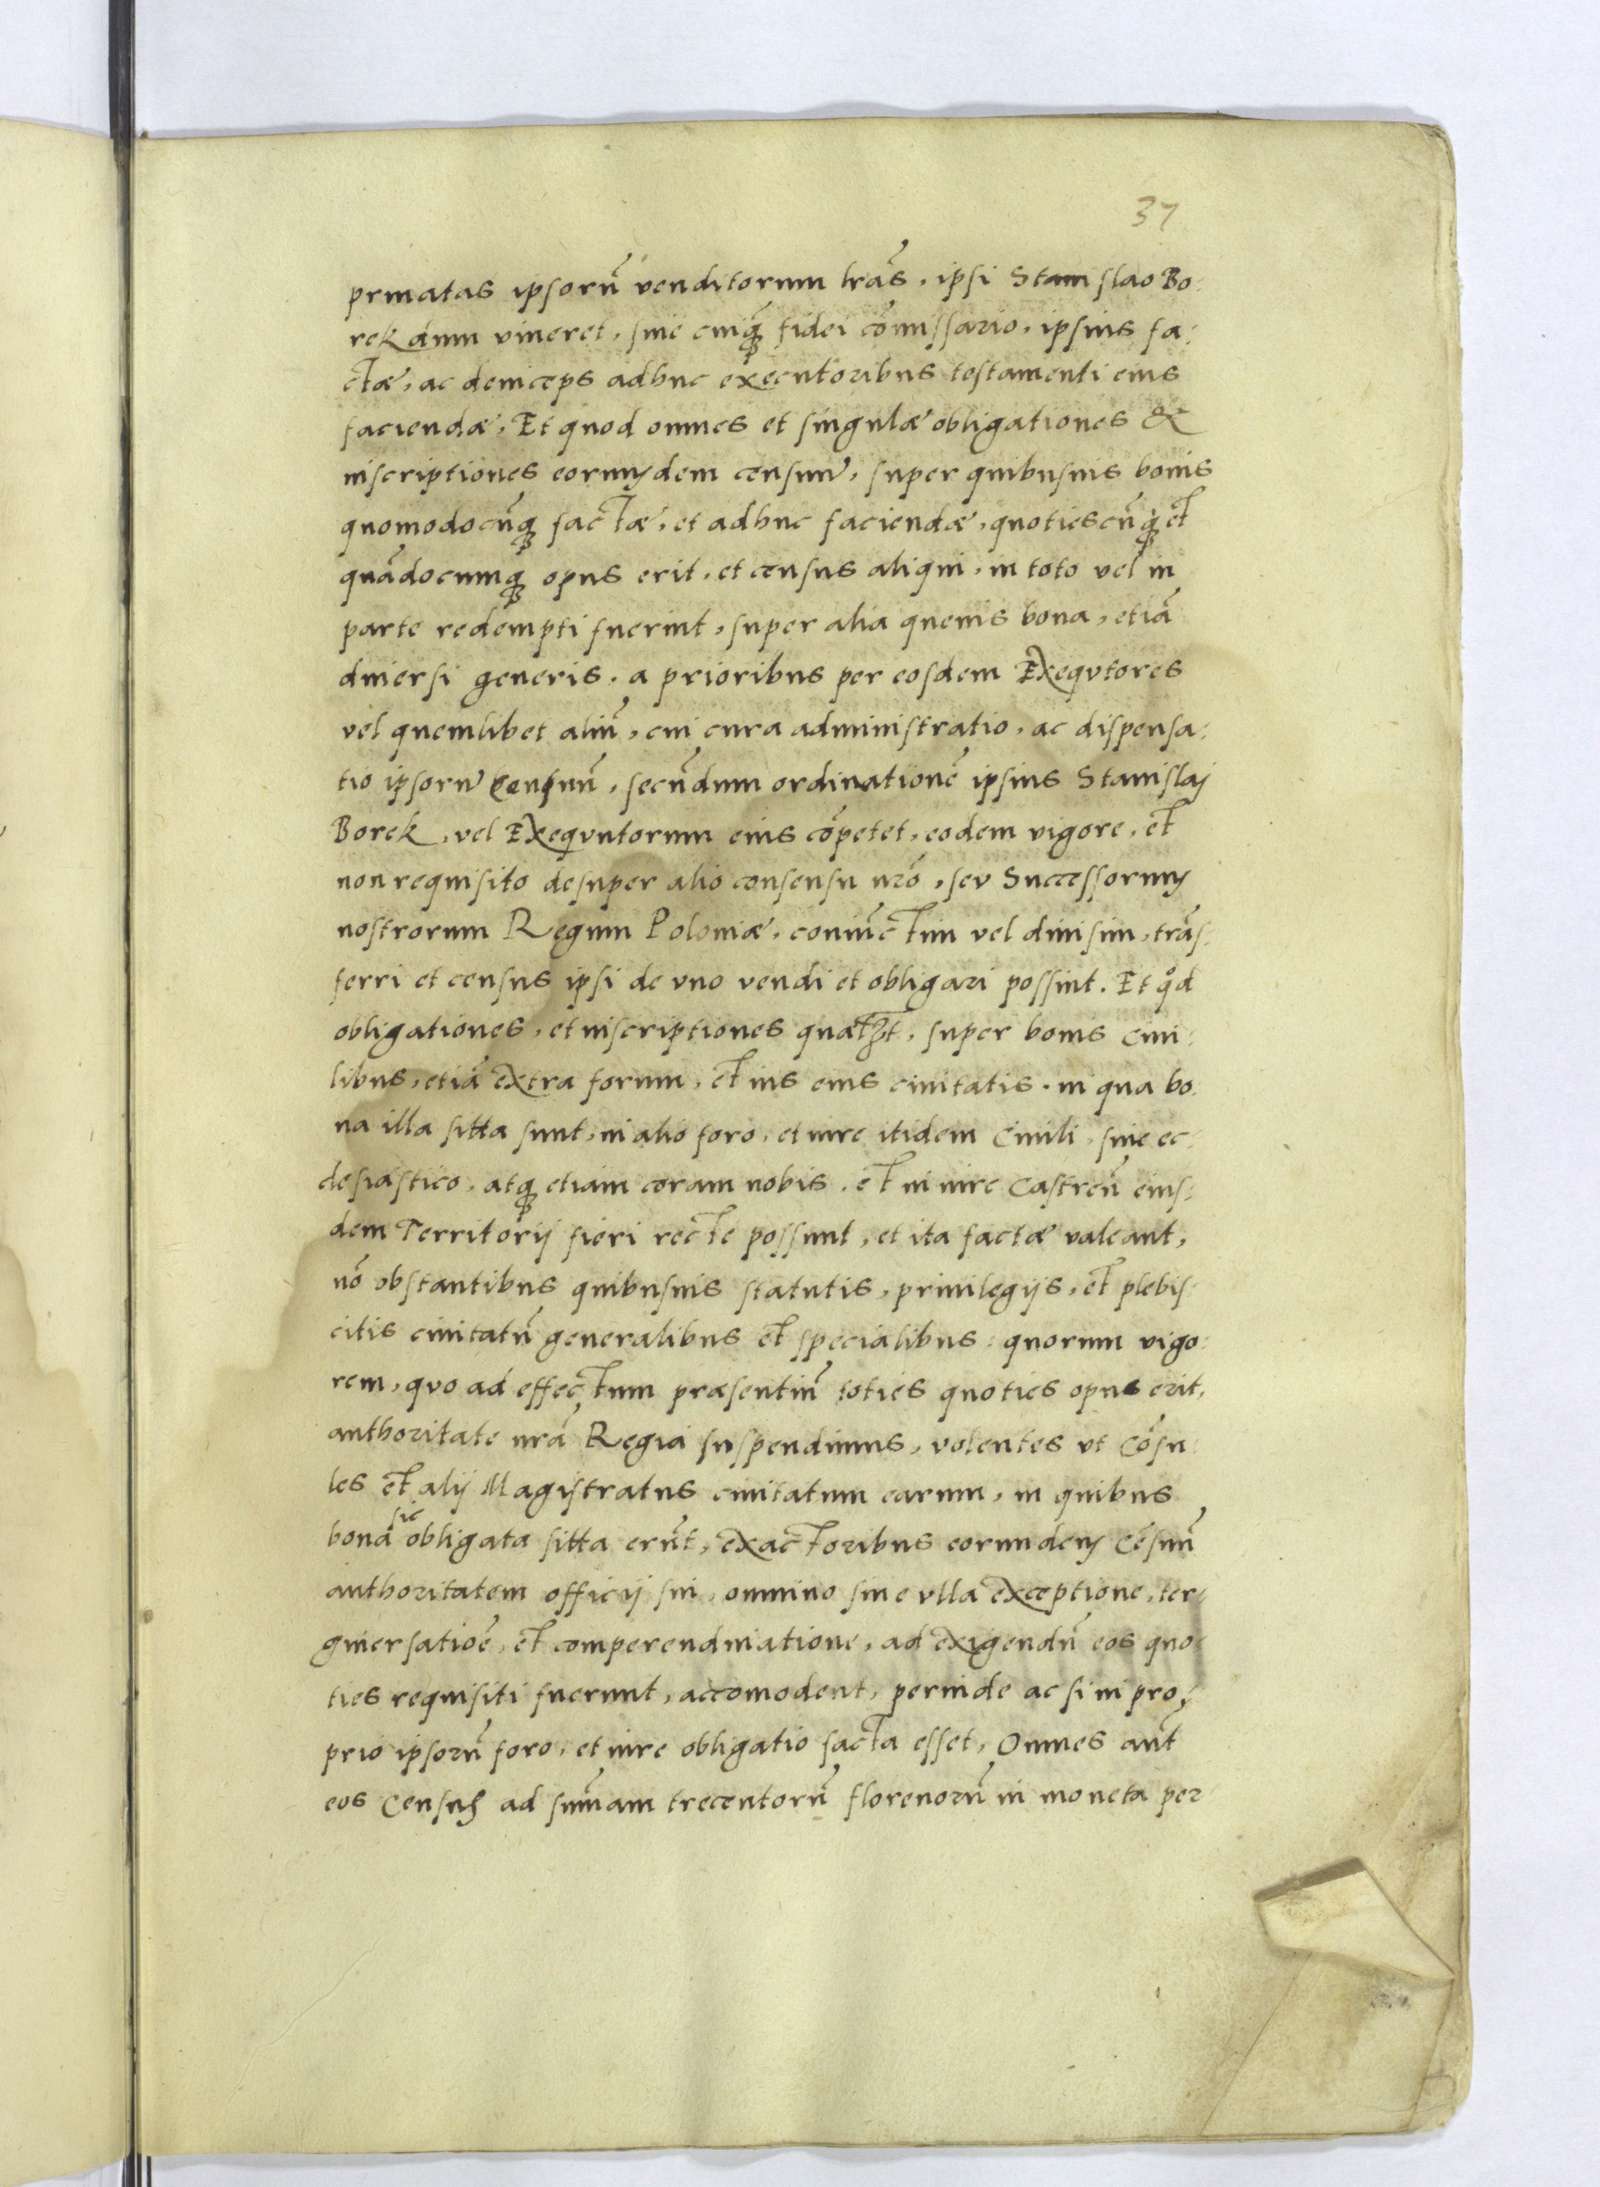 37
priuatas ipsorū venditorum lrās, ipsi Stanislao Bo-
rek dum viueret, siue cuiq̃ fidei cōmissario, ipsius fa-
ctæ, ac deinceps adhuc executoribus testamenti eius
faciendæ, Et quod omnes et singulæ obligationes &
inscriptiones eorumdem censuū, super quibusuis bonis
quomodocūq; factæ, et adhuc faciendæ, quotiescūq; et
quādocumq; opus erit, et census aliqui, in toto vel in
parte redempti fuerint, super alia queuis bona, etiā
diuersi generis, a prioribus per eosdem Exeqvtores
vel quemlibet aliū, cui cura administratio, ac dispensa-
tio ipsorū censuū, secūdum ordinationē ipsius Stanislaj
Borek, vel Exeqvutorum eius cōpetet, eodem vigore, et
non requisito desuper alio consensu nrō, sev Successorum
nostrorum Regum Poloniæ, coniūctim vel diuisim, trās-
ferri et census ipsi de vno vendi et obligari possint. Et qd
obligationes, et inscriptiones quæ, super bonis Ciui-
libus, etiā extra forum, et ius eius ciuitatis, in qua bo-
na illa sitta sunt, in alio foro, et iure itidem Ciuili, siue ec-
clesiastico, atq; etiam coram nobis, et in iure Castreñ eius-
dem Territorij fieri recte possunt, et ita factæ valeant,
nō obstantibus quibusuis statutis, priuilegijs, et plebis-
citis ciuitatū generalibus et specialibus, quorum vigo-
rem, qvo ad effectum præsentiū toties quoties opus erit,
authoritate nrā Regia suspendimus, volentes vt Cōsu-
les et alij Magistratus ciuitatum earum, in quibus
bona sic obligata sitta erūt, exactoribus eorumdem Cēsuū
authoritatem officij sui, omnino sine vlla exceptione, ter-
giuersatiōe, et comperendinatione, ad exigendū eos quo-
ties requisiti fuerunt, accomodent, perinde ac si in pro-
prio ipsorū foro, et iure obligatio facta esset, Omnes aut̄
eos Census ad sum̄am trecentorū florenorū in moneta per